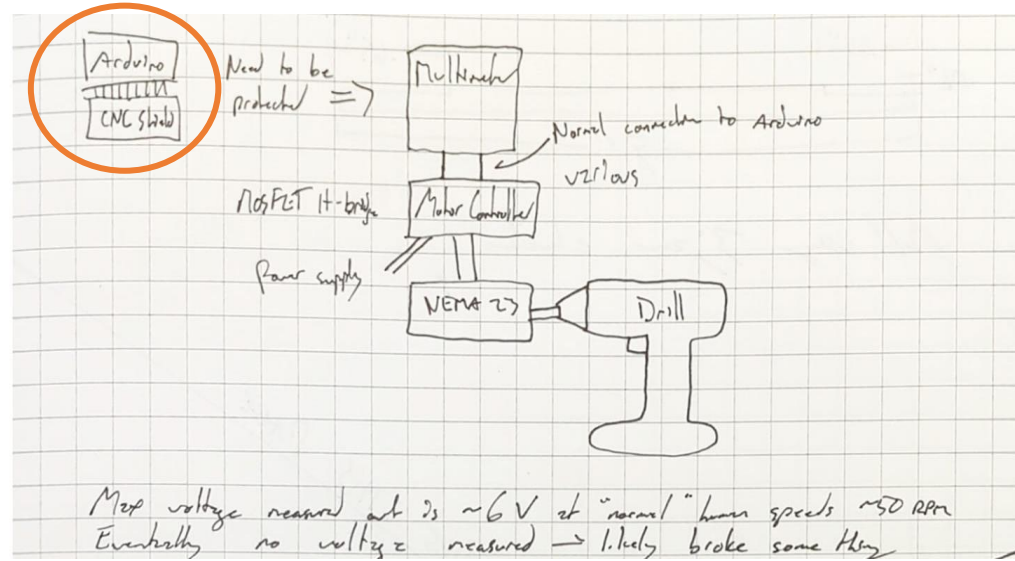 Arduino
CNC Shield
Need to be
protected =>
Multimeter
Normal connection to Arduino
various
MosFET H-bridge
Motor Controller
Power supply
NEMA 23
Drill
Max voltage measured out is ~6 V at "normal" human speeds ~50 RPM
Eventually no voltage measured → likely broke some thing